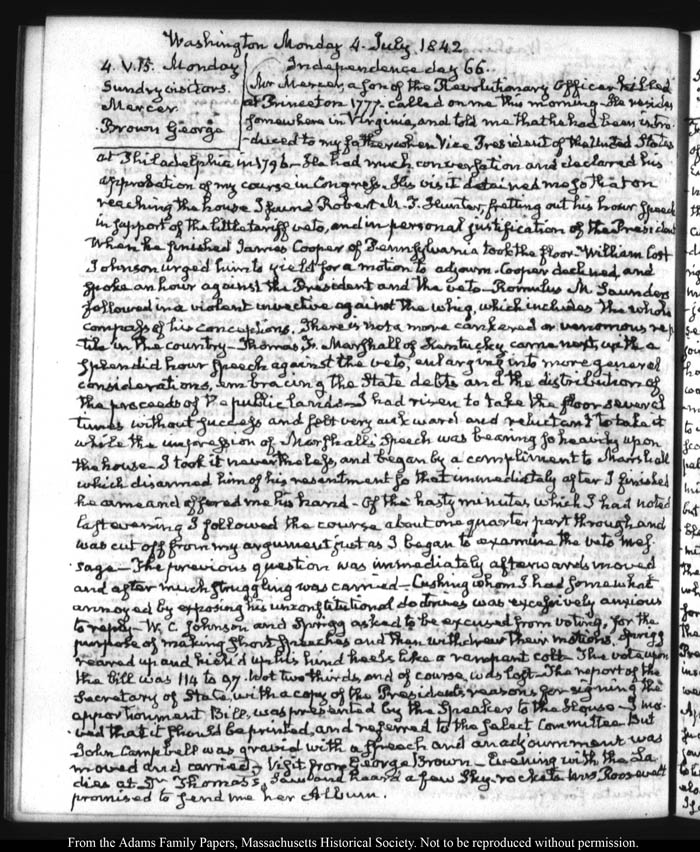 Washington Monday 4. July. 1842.
4. V.15. Monday
Sundry visitors.
Mercer
Brown George
Independence day 66.
Mr Mercer, a son of the Revolutionary Officer killed
at Princeton 1777. called on me this morning. He resides
somewhere in Virginia, and told me that he had been intro-
-duced to my father when Vice President of the United States
at Philadelphia in 1796 — He had much conversation and declared his
approbation of my course in Congress. His visit detained me so that on
reaching the house I found Robert M. T. Hunter, fretting out his hour speech
in support of the little tariff veto, and in personal justification of the President
When he finished James Cooper of Pennsylvania took the floor. William Cost
Johnson urged him to yield for a motion to adjourn. Cooper declined, and
spoke an hour against the President and the veto. Romulus M. Saunders
followed in a violent invective against the whig, which includes the whole
compass of his conceptions. There is not a more cankered or venomous rep
tile in the country — Thomas F. Marshall of Kentucky came next, with a
splendid hour speech against the veto, enlarging into more general
considerations, embracing the State debts and the distribution of
the proceeds of the public lands — I had risen to take the floor several
times without success and felt very awkward and reluctant to take it
while the impression of Marshall's speech was bearing so heavily upon
the house — I took it nevertheless, and began by a compliment to Marshall
which disarmed him of his resentment so that immediately after I finished
he came and offered me his hand — Of the hasty minutes which I had noted
last evening I followed the course about one quarter part through, and
was cut off from my argument just as I began to examine the veto mes-
-sage — The previous question was immediately afterwards moved
and after much struggling was carried — Cushing whom I had somewhat
annoyed by exposing his unconstitutional doctrines was excessively anxious
to reply — W. C. Johnson and Sprigg asked to be excused from voting, for the
purpose of making short speeches and then withdrew their motions. Sprigg
reared up and kick'd up his hind heels like a rampant colt — The vote upon
the bill was 114 to 97. Not two thirds, and of course was lost — The report of the
Secretary of State, with a copy of the President's reasons for signing the
apportionment Bill, was presented by the Speaker to the House — I mo-
-ved that it should be printed, and referred to the select Committee. But
John Campbell was gravid with a speech and an adjournment was
moved and carried — Visit from George Brown — Evening with the La-
dies at Dr Thomas's, saw and heard a few sky rockets. Mrs Roosevelt
promised to send me her Album.
From the Adams Family Papers, Massachusetts Historical Society. Not to be reproduced without permission.